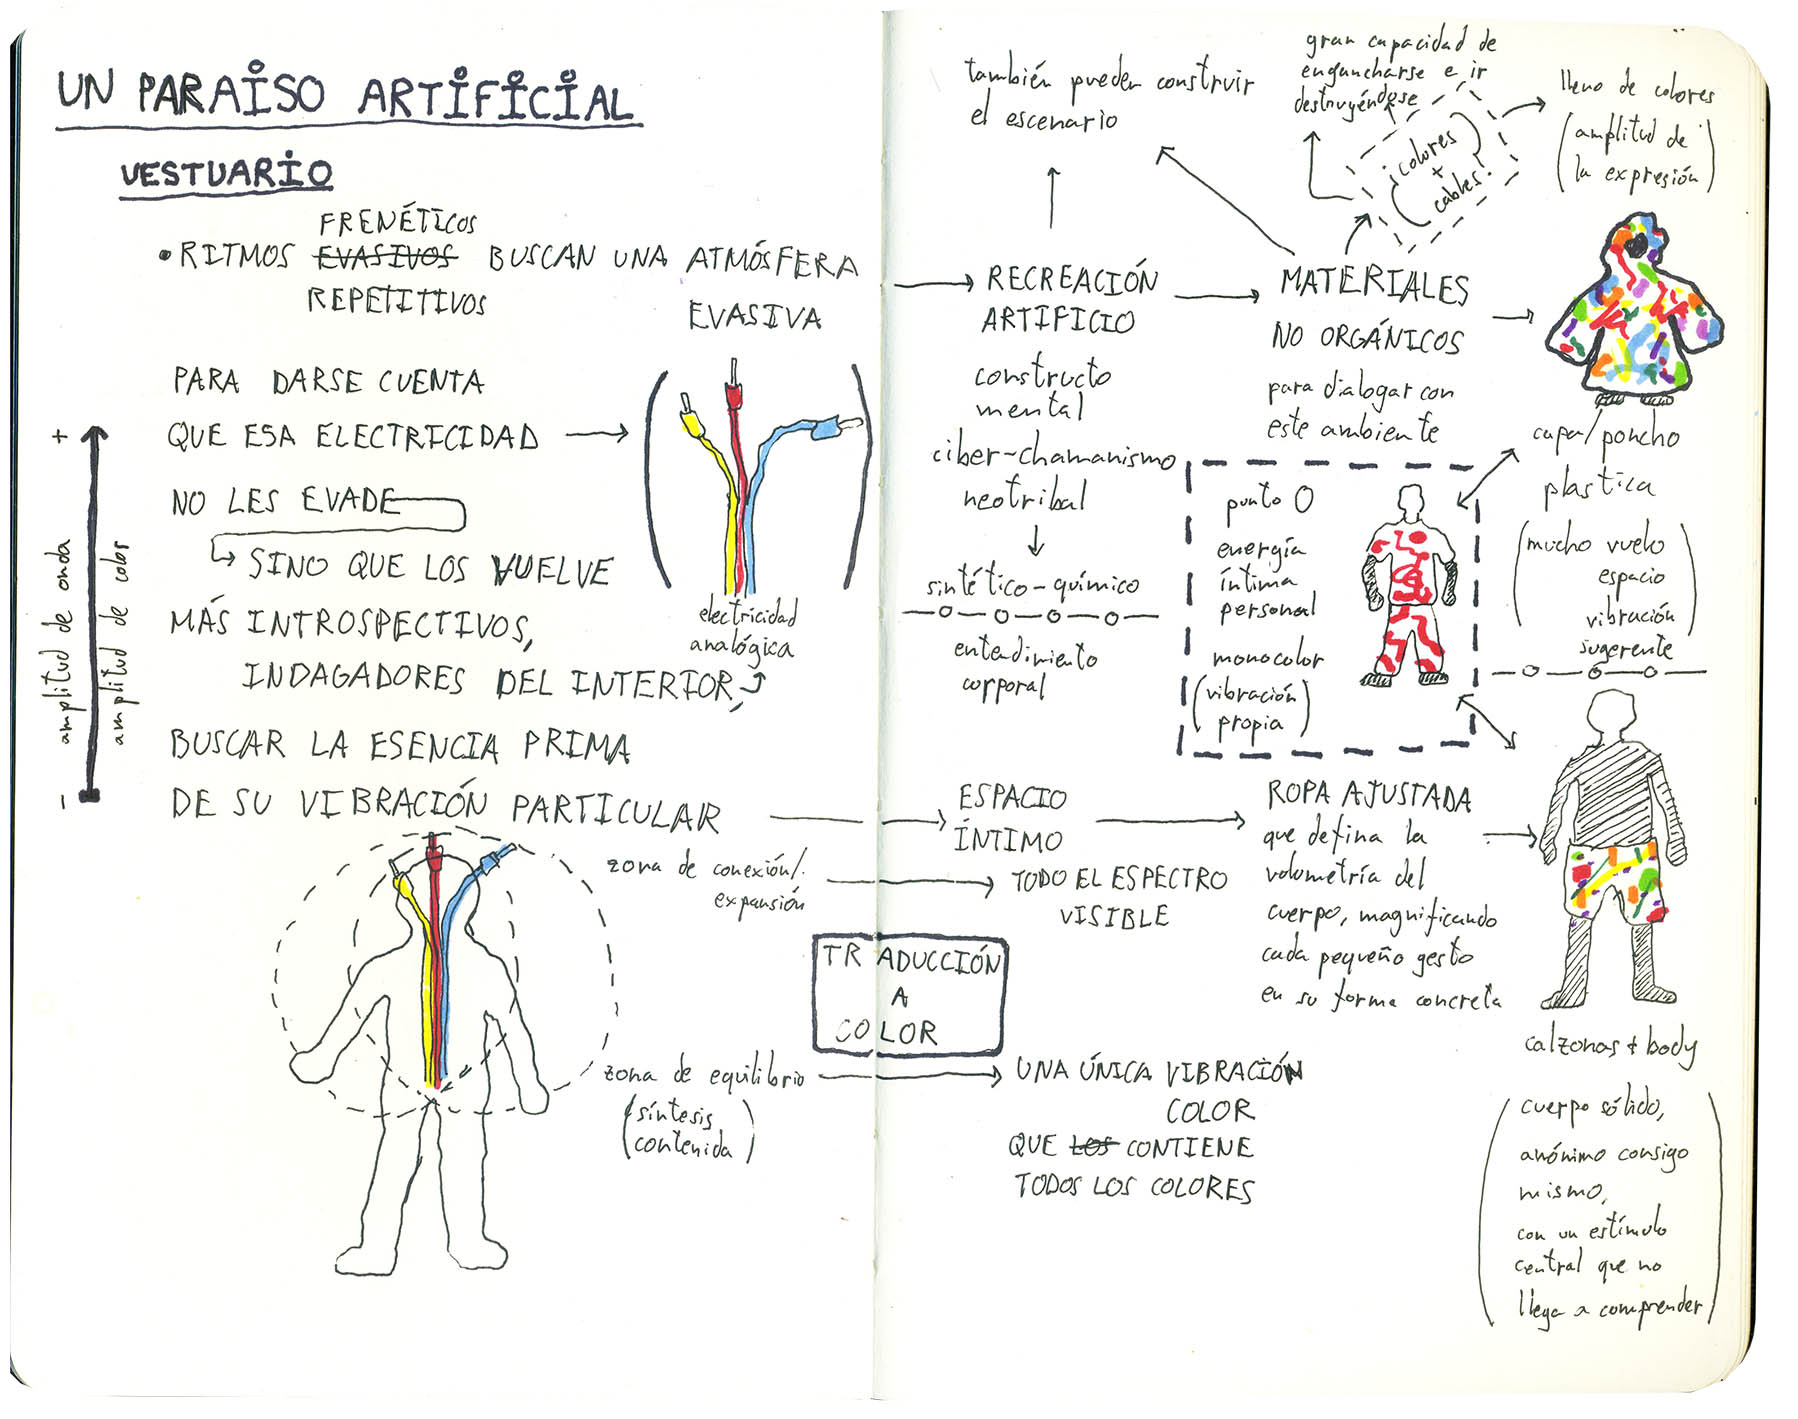 UN PARAISO ARTIFICIAL
VESTUARIO
FRENÉTICOS
• RITMOS EVASIVOS BUSCAN UNA ATMÓSFERA
REPETITIVOS
EVASIVA
PARA DARSE CUENTA
QUE ESA ELECTRICIDAD
NO LES EVADE
SINO QUE LOS VUELVE
MÁS INTROSPECTIVOS,
INDAGADORES DEL INTERIOR,
BUSCAR LA ESENCIA PRIMA
DE SU VIBRACIÓN PARTICULAR
+
amplitud de onda
amplitud de color
-
electricidad
analógica
zona de conexión/
expansión
zona de equilibrio
(síntesis
contenida)
TRADUCCIÓN
A
COLOR
también pueden construir
el escenario
RECREACIÓN
ARTIFICIO
constructo
mental
ciber-chamanismo
neotribal
sintético-químico
entendimiento
corporal
ESPACIO
ÍNTIMO
TODO EL ESPECTRO
VISIBLE
UNA ÚNICA VIBRACIÓN
COLOR
QUE LOS CONTIENE
TODOS LOS COLORES
gran capacidad de
engancharse e ir
destruyéndose
(¡colores
+
cables!)
MATERIALES
NO ORGÁNICOS
para dialogar con
este ambiente
punto 0
energía
íntima
personal
monocolor
(vibración
propia)
ROPA AJUSTADA
que defina la
volumetría del
cuerpo, magnificando
cada pequeño gesto
en su forma concreta
lleno de colores
(amplitud de
la expresión)
capa/poncho
plastica
(mucho vuelo
espacio
vibración)
sugerente
calzonas + body
(cuerpo sólido,
anónimo consigo
mismo,
con un estímulo
central que no
llega a comprender)